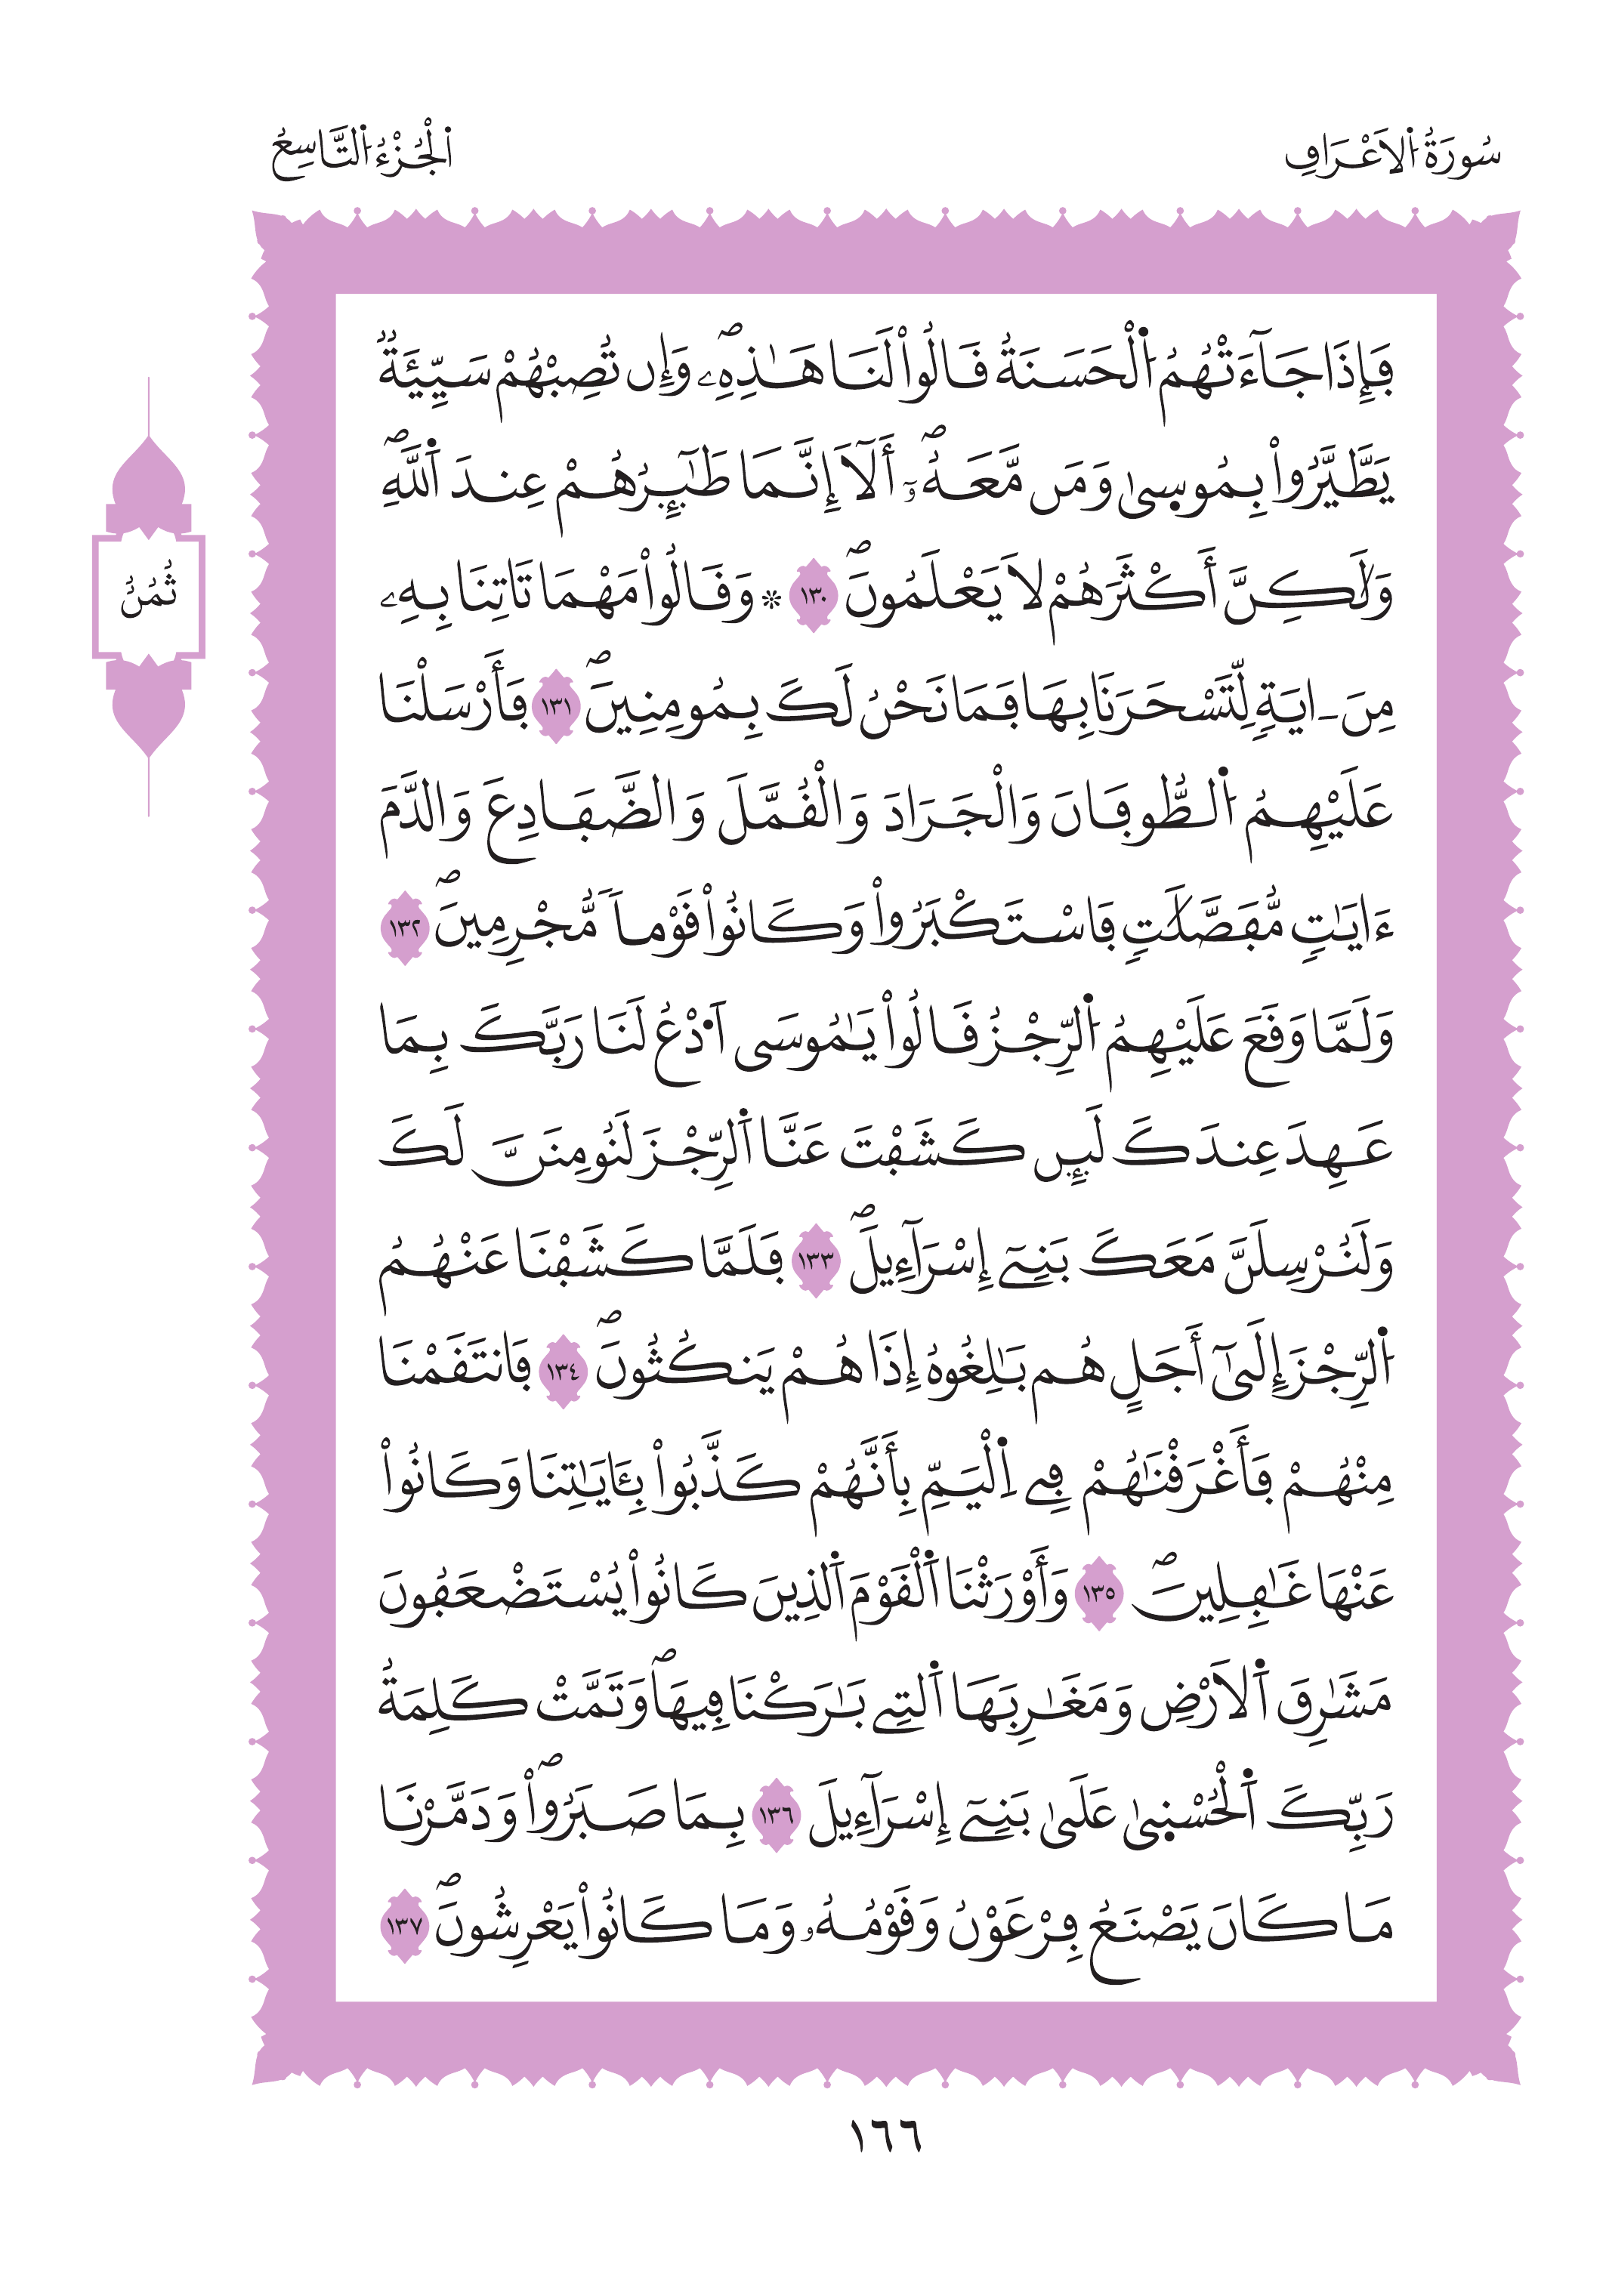 سُورَةُ اُ۬لَاعْرَافِ
اَ۬لْجُزْءُ اُ۬لتَّاسِعُ
فَإِذَا جَآءَتْهُمُ اُ۬لْحَسَنَةُ قَالُواْ لَنَا هَٰذِهِۦۖ وَإِن تُصِبْهُمْ سَيِّئَةٞ
يَطَّيَّرُواْ بِمُوس۪يٰ وَمَن مَّعَهُۥٓۖ أَلَآ إِنَّمَا طَٰٓئِرُهُمْ عِندَ اَ۬للَّهِۖ
وَلَٰكِنَّ أَكْثَرَهُمْ لَا يَعْلَمُونَۖ ١٣٠ ۞ وَقَالُواْ مَهْمَا تَاتِنَا بِهِۦ
مِنَ ـ ايَةٖ لِّتَسْحَرَنَا بِهَا فَمَا نَحْنُ لَكَ بِمُومِنِينَۖ ١٣١ فَأَرْسَلْنَا
عَلَيْهِمُ اُ۬لطُّوفَانَ وَالْجَرَادَ وَالْقُمَّلَ وَالضَّفَادِعَ وَالدَّمَ
ءَايَٰتٖ مُّفَصَّلَٰتٖ فَاسْتَكْبَرُواْ وَكَانُواْ قَوْماٗ مُّجْرِمِينَۖ ١٣٢
وَلَمَّا وَقَعَ عَلَيْهِمُ اُ۬لرِّجْزُ قَالُواْ يَٰمُوسَى اَ۟دْعُ لَنَا رَبَّكَ بِمَا
عَهِدَ عِندَكَ لَئِن كَشَفْتَ عَنَّا اَ۬لرِّجْزَ لَنُومِنَنَّ لَكَ
وَلَنُرْسِلَنَّ مَعَكَ بَنِےٓ إِسْرَآءِيلَۖ ١٣٣ فَلَمَّا كَشَفْنَا عَنْهُمُ
اُ۬لرِّجْزَ إِلَىٰٓ أَجَلٍ هُم بَٰلِغُوهُ إِذَا هُمْ يَنكُثُونَۖ ١٣٤ فَانتَقَمْنَا
مِنْهُمْ فَأَغْرَقْنَٰهُمْ فِے اِ۬لْيَمِّ بِأَنَّهُمْ كَذَّبُواْ بِـَٔايَٰتِنَا وَكَانُواْ
عَنْهَا غَٰفِلِينَۖ ١٣٥ وَأَوْرَثْنَا اَ۬لْقَوْمَ اَ۬لذِينَ كَانُواْ يُسْتَضْعَفُونَ
مَشَٰرِقَ اَ۬لَارْضِ وَمَغَٰرِبَهَا اَ۬لتِے بَٰرَكْنَا فِيهَاۖ وَتَمَّتْ كَلِمَةُ
رَبِّكَ اَ۬لْحُسْن۪يٰ عَلَىٰ بَنِےٓ إِسْرَآءِيلَ ١٣٦ بِمَا صَبَرُواْۖ وَدَمَّرْنَا
مَا كَانَ يَصْنَعُ فِرْعَوْنُ وَقَوْمُهُۥ وَمَا كَانُواْ يَعْرِشُونَۖ ١٣٧
ثُمُنُ
١٦٦